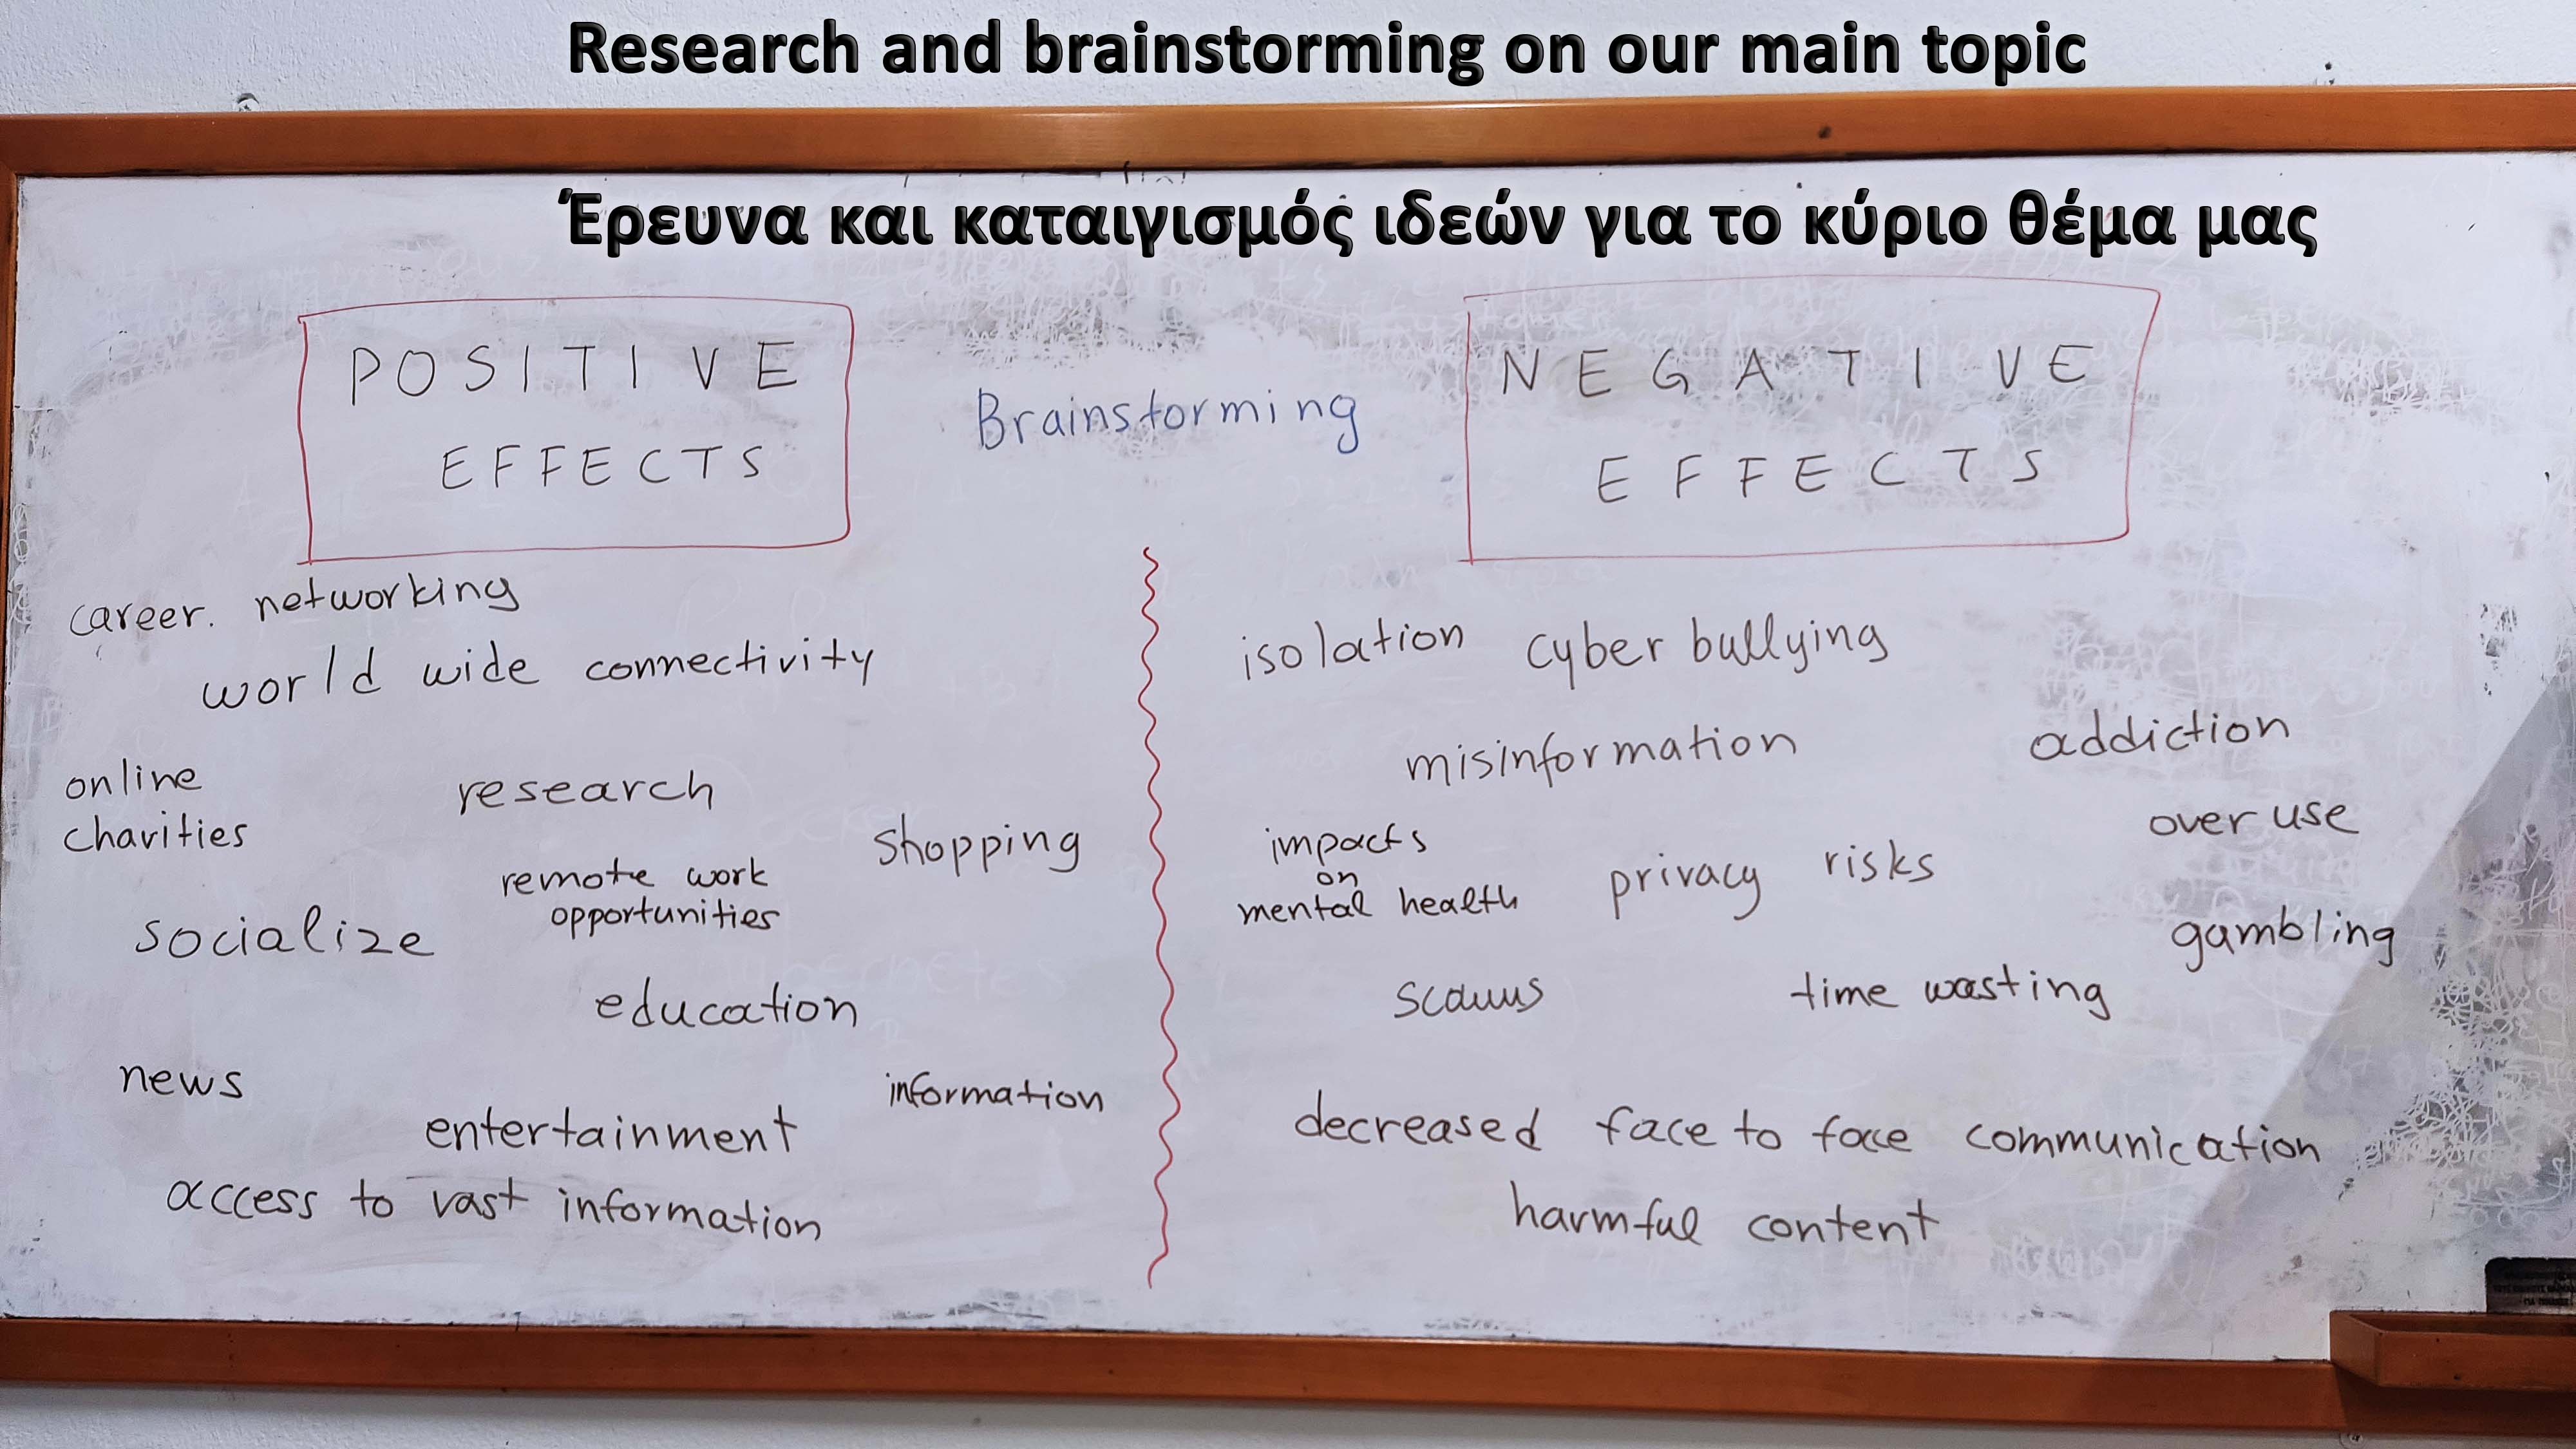 Research and brainstorming on our main topic
Έρευνα και καταιγισμός ιδεών για το κύριο θέμα μας
POSITIVE
EFFECTS
Brainstorming
NEGATIVE
EFFECTS
career. networking
world wide connectivity
online
charities
research
shopping
remote work
opportunities
socialize
education
news
information
entertainment
access to vast information
isolation cyber bullying
misinformation
addiction
over use
impacts
on
mental health
privacy risks
gambling
scams
time wasting
decreased face to face communication
harmful content